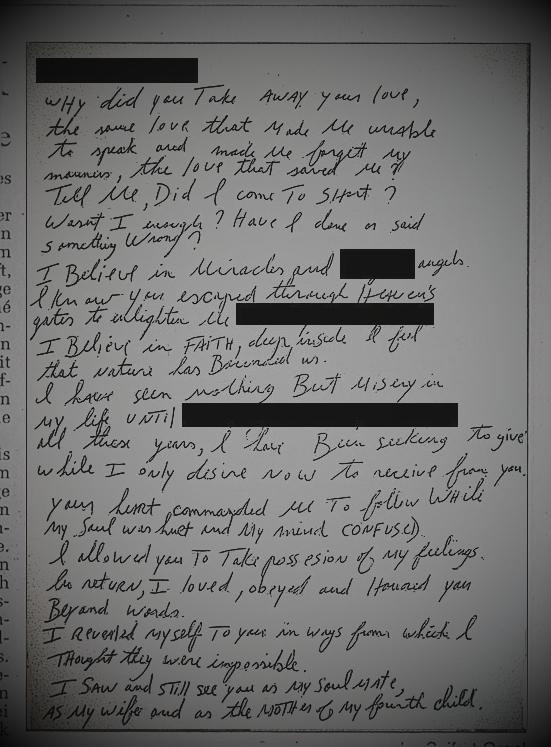 WHY did you Take AWAY your love,
the same love that Made Me unable
to speak and made Me forgett my
manners, the love that saved Me?
Tell Me, Did I come To SHort?
Wasnt I enough? Have I done or said
something Wrong?
I Believe in Miracles and angels.
I Know you escaped through Heaven's
gates to enlighten Me
I Believe in FAITH, deep inside I feel
that nature has us.
I have seen nothing But Misery in
my life UNTil
all these years, I have Been seeking to give
while I only desire NOW to receive from you.
your heart commanded Me To follow WHile
My Soul was hurt and My mind CONFUSED.
I allowed you TO Take possesion of my feelings.
In return, I loved, obeyed and Honored you
Beyond words.
I Revealed Myself To you in ways from which I
THought they were impossible.
I SAW and STill see you as My Soul Mate,
AS My wife and as the MOTHER of My fourth child.